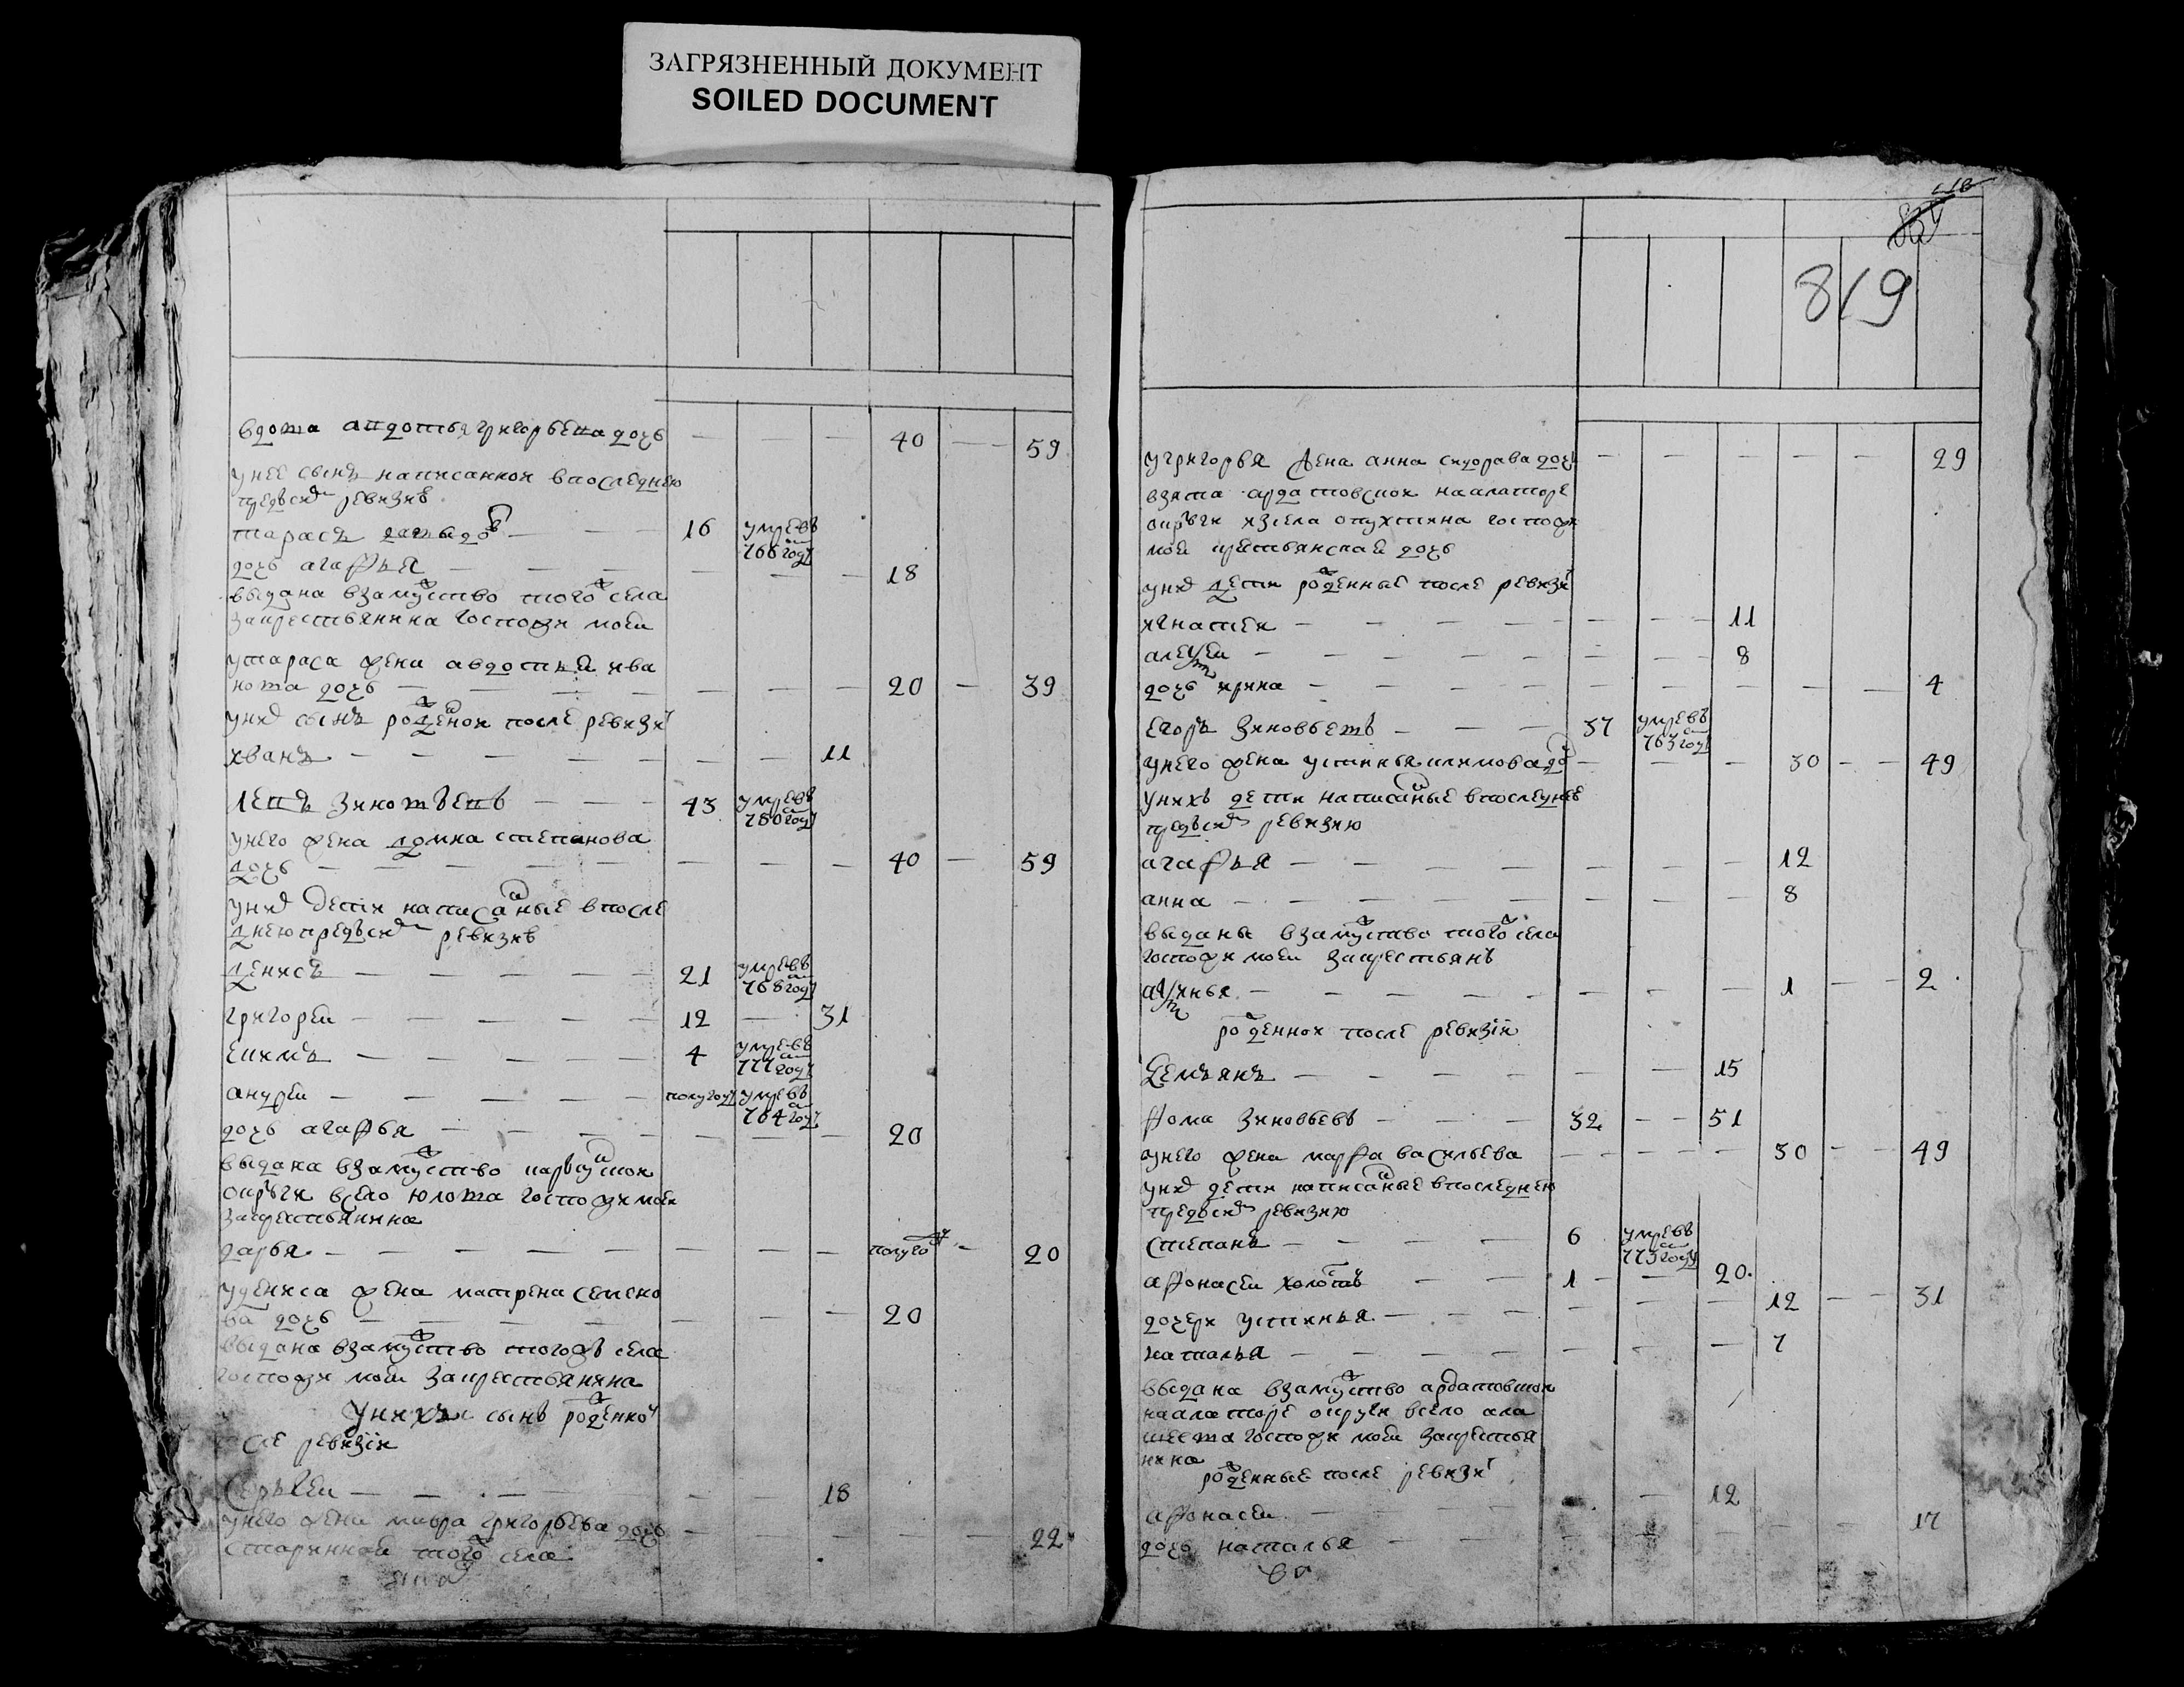 ЗАГРЯЗНЕННЫЙ ДОКУМЕНТ
SOILED DOCUMENT
вдова авдотья григорьева дочь — — — 40 — — 59
унее сынъ написанной впоследнею
предъ сиⷨ ревизиѣ
тарасъ — — 16 умреⷡ въ 768 году
дочь агафья — — — — — — 18
выдана взамуⷤство тогоⷤ села
закрестьянина госпожи моей
утараса жена авдотья ива
нова дочь — — — — — — — 20 — 39
униⷯ сынъ рожденой после ревизиⷤ
иванъ — — — — — — — 11
левъ зиновьевъ — — — 43 умревъ 780 году
унего жена домна степанова
дочь — — — — — — — — 40 — 59
униⷯ дети написаⷩные впосле
днею предъ сиⷨ ревизиѣ
денисъ — — — — — 21 умревъ 768 году
григорей — — — — — 12 — 31
екимъ — — — — — 4 умревъ 777 году
андрей — — — — — полугоду умревъ 764 году
дочь агафья — — — — — — — 20
выдана взамуⷤство
округи всело юлова госпожи моей
закрестьянина
дарья — — — — — — — — полуго — 20
удениса жена матрена семено
ва дочь — — — — — — — 20
выдана взамуⷤство тогожъ села
госпожи моей закрестьянина
унихъ сынъ роⷤденной
после ревизiи
сергей — — — — — — 18
унего жена мавра григорьева дочь — — — — — 22
старинной тогоⷤ села
819
угригорья жена анна сидорава дочь — — — — — 29
взята ардатовской наалаторе
округи изсела опухтина госпожи
моей крестьянской дочь
униⷯ дети роⷤденные после ревизиⷤ
игнатей — — — — — — — 11
алексей — — — — — — — 8
дочь ирина — — — — — — — — — 4
егоръ зиновьевъ — — — 37 умревъ 763 году
унего жена устинья климова до — — — 30 — — 49
унихъ дети написаⷩные впоследнее
предъ сиⷨ ревизию
агафья — — — — — — — — 12
анна — — — — — — — — 8
выданы взамуⷤство тогоⷤ села
госпожи моей закрестьянъ
аксинья — — — — — — — — 1 — — 2
роⷤденной после ревизiи
демьянъ — — — — — — 15
фома зиновьевъ — — — 32 — — 51
унего жена марфа васильева — — — — — 30 — — 49
униⷯ дети написаⷩные впоследнею
предъ сиⷨ ревизию
степанъ — — — — 6 умревъ 773 году
афонасей холоⷭтъ — — 1 — — 20
дочери устинья — — — — — — — 12 — — 31
наталья — — — — — — — 7
выдана взамуⷤство ардатовской
наалаторе округи всело ала
шеева госпожи моей закрестья
нина
роⷤденные после ревизиⷤ
афонасей — — — — 12
дочь наталья — — — — — — — 17